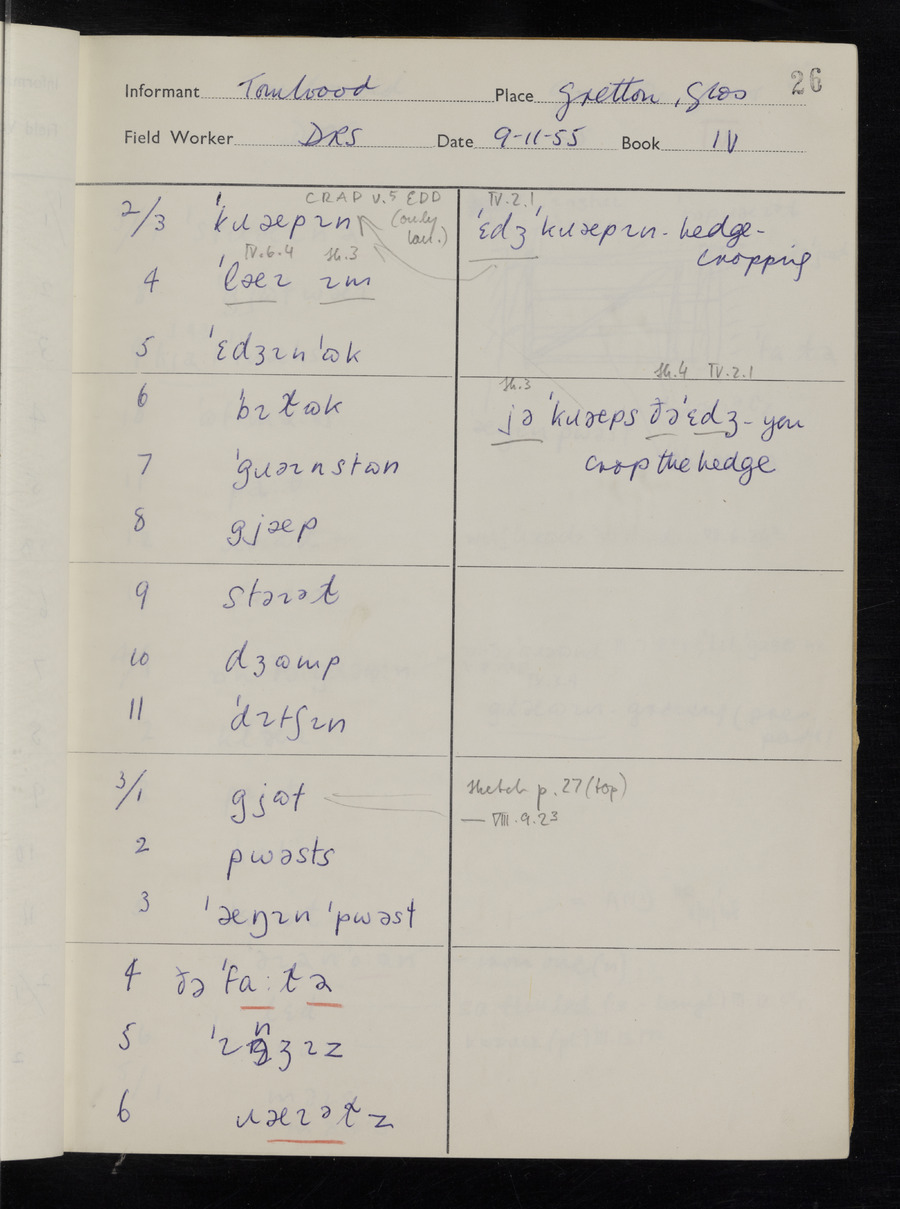 26
Informant Tom Wood Place Gretton, Glos
Field Worker DRS Date 9-11-55 Book IV
CRAP v.5 EDD
(only
2/3 ˈkɹæpɪn
IV.2.1
ˈɛdʒˈkɹæpɪn - hedge-
cropping
IV.6.4 Sh.3
4 ˈlæɪ ɪm
5 ˈɛdʒɪnˈʊk
6 ˈbɪlʊk
Sh.3 Sh.4 IV.2.1
jə ˈkɹæps ðəˈɛdʒ - you
crop the hedge
7 ˈgɹəɪnstʊn
8 gjæp
9 stəɪət
10 dʒʊmp
11 ˈdɪtʃɪn
3/1 gjət
Sketch p.27 (top)
— VIII.9.23
2 pwəsts
3 ˈæŋɪn ˈpwəst
4 ðə ˈfa:tə
5 ˈɪnʒɪz
6 ɹæɪətz